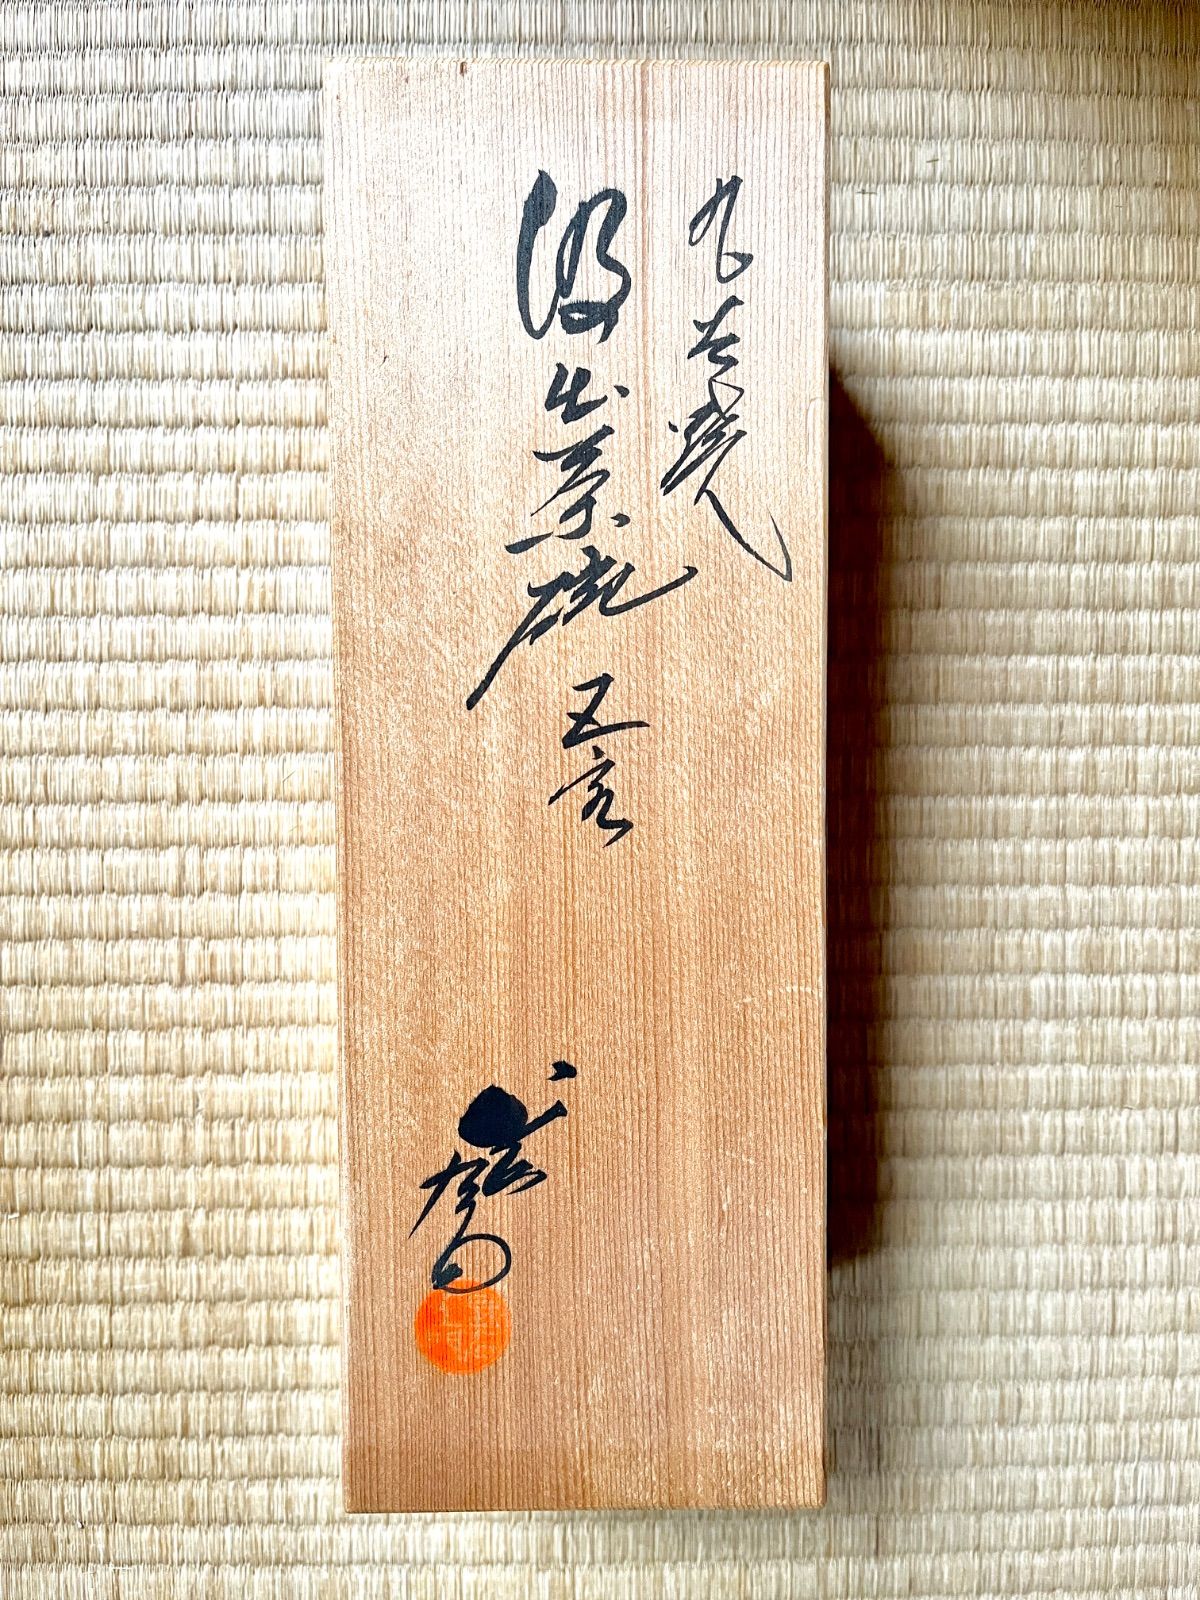 九谷焼
汲出茶碗 五客